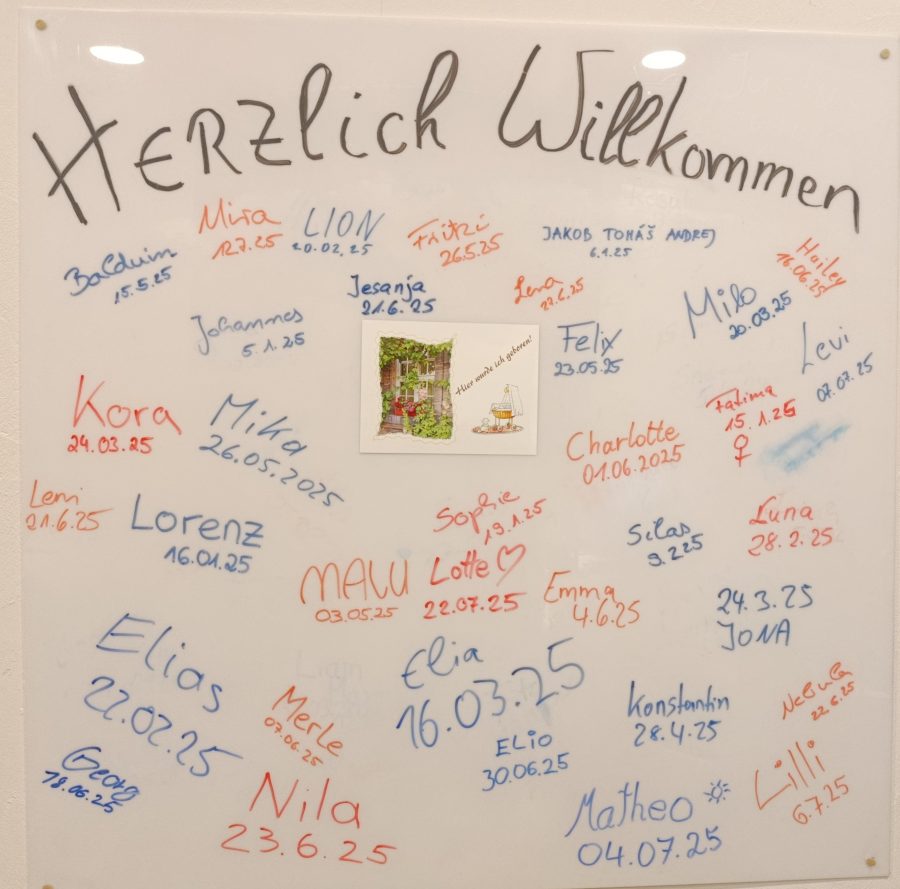 HERZlich Willkommen
Mira
12.7.25
LION
20.02.25
Fritzi
26.5.25
JAKOB TOMÁŠ ANDREJ
6.1.25
Hailey
16.06.25
Balduin
15.5.25
Jesanja
21.6.25
Lena
Milo
20.03.25
Johannes
5.1.25
Hier wurde ich geboren!
Felix
23.05.25
Levi
07.07.25
Kora
24.03.25
Mika
26.05.2025
Charlotte
01.06.2025
Fatima
15.1.25
♀
Leni
21.6.25
Lorenz
16.01.25
Sophie
19.1.25
Silas
9.2.25
Luna
28.2.25
MALU
03.05.25
Lotte ♡
22.07.25
Emma
4.6.25
24.3.25
JONA
Elias
22.02.25
Elia
16.03.25
Merle
07.06.25
Konstantin
28.4.25
Nebula
22.6.25
ELIO
30.06.25
Georg
18.06.25
Nila
23.6.25
Matheo
04.07.25
Lilli
6.7.25